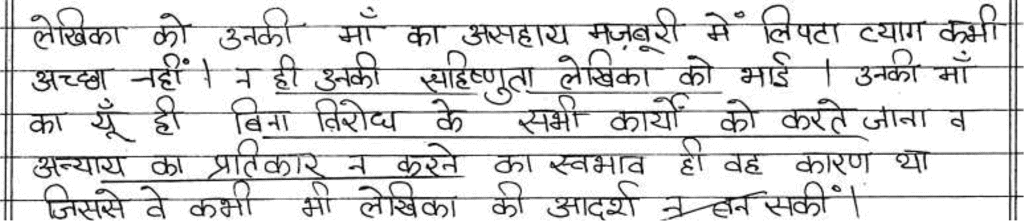 लेखिका को उनकी माँ का असहाय मज़बूरी में लिपटा त्याग कभी
अच्छा नहीं। न ही उनकी सहिष्णुता लेखिका को भाई। उनकी माँ
का यूँ ही बिना विरोध के सभी कार्यों को करते जाना व
अन्याय का प्रतिकार न करने का स्वभाव ही वह कारण था
जिससे वे कभी भी लेखिका की आदर्श न बन सकीं।